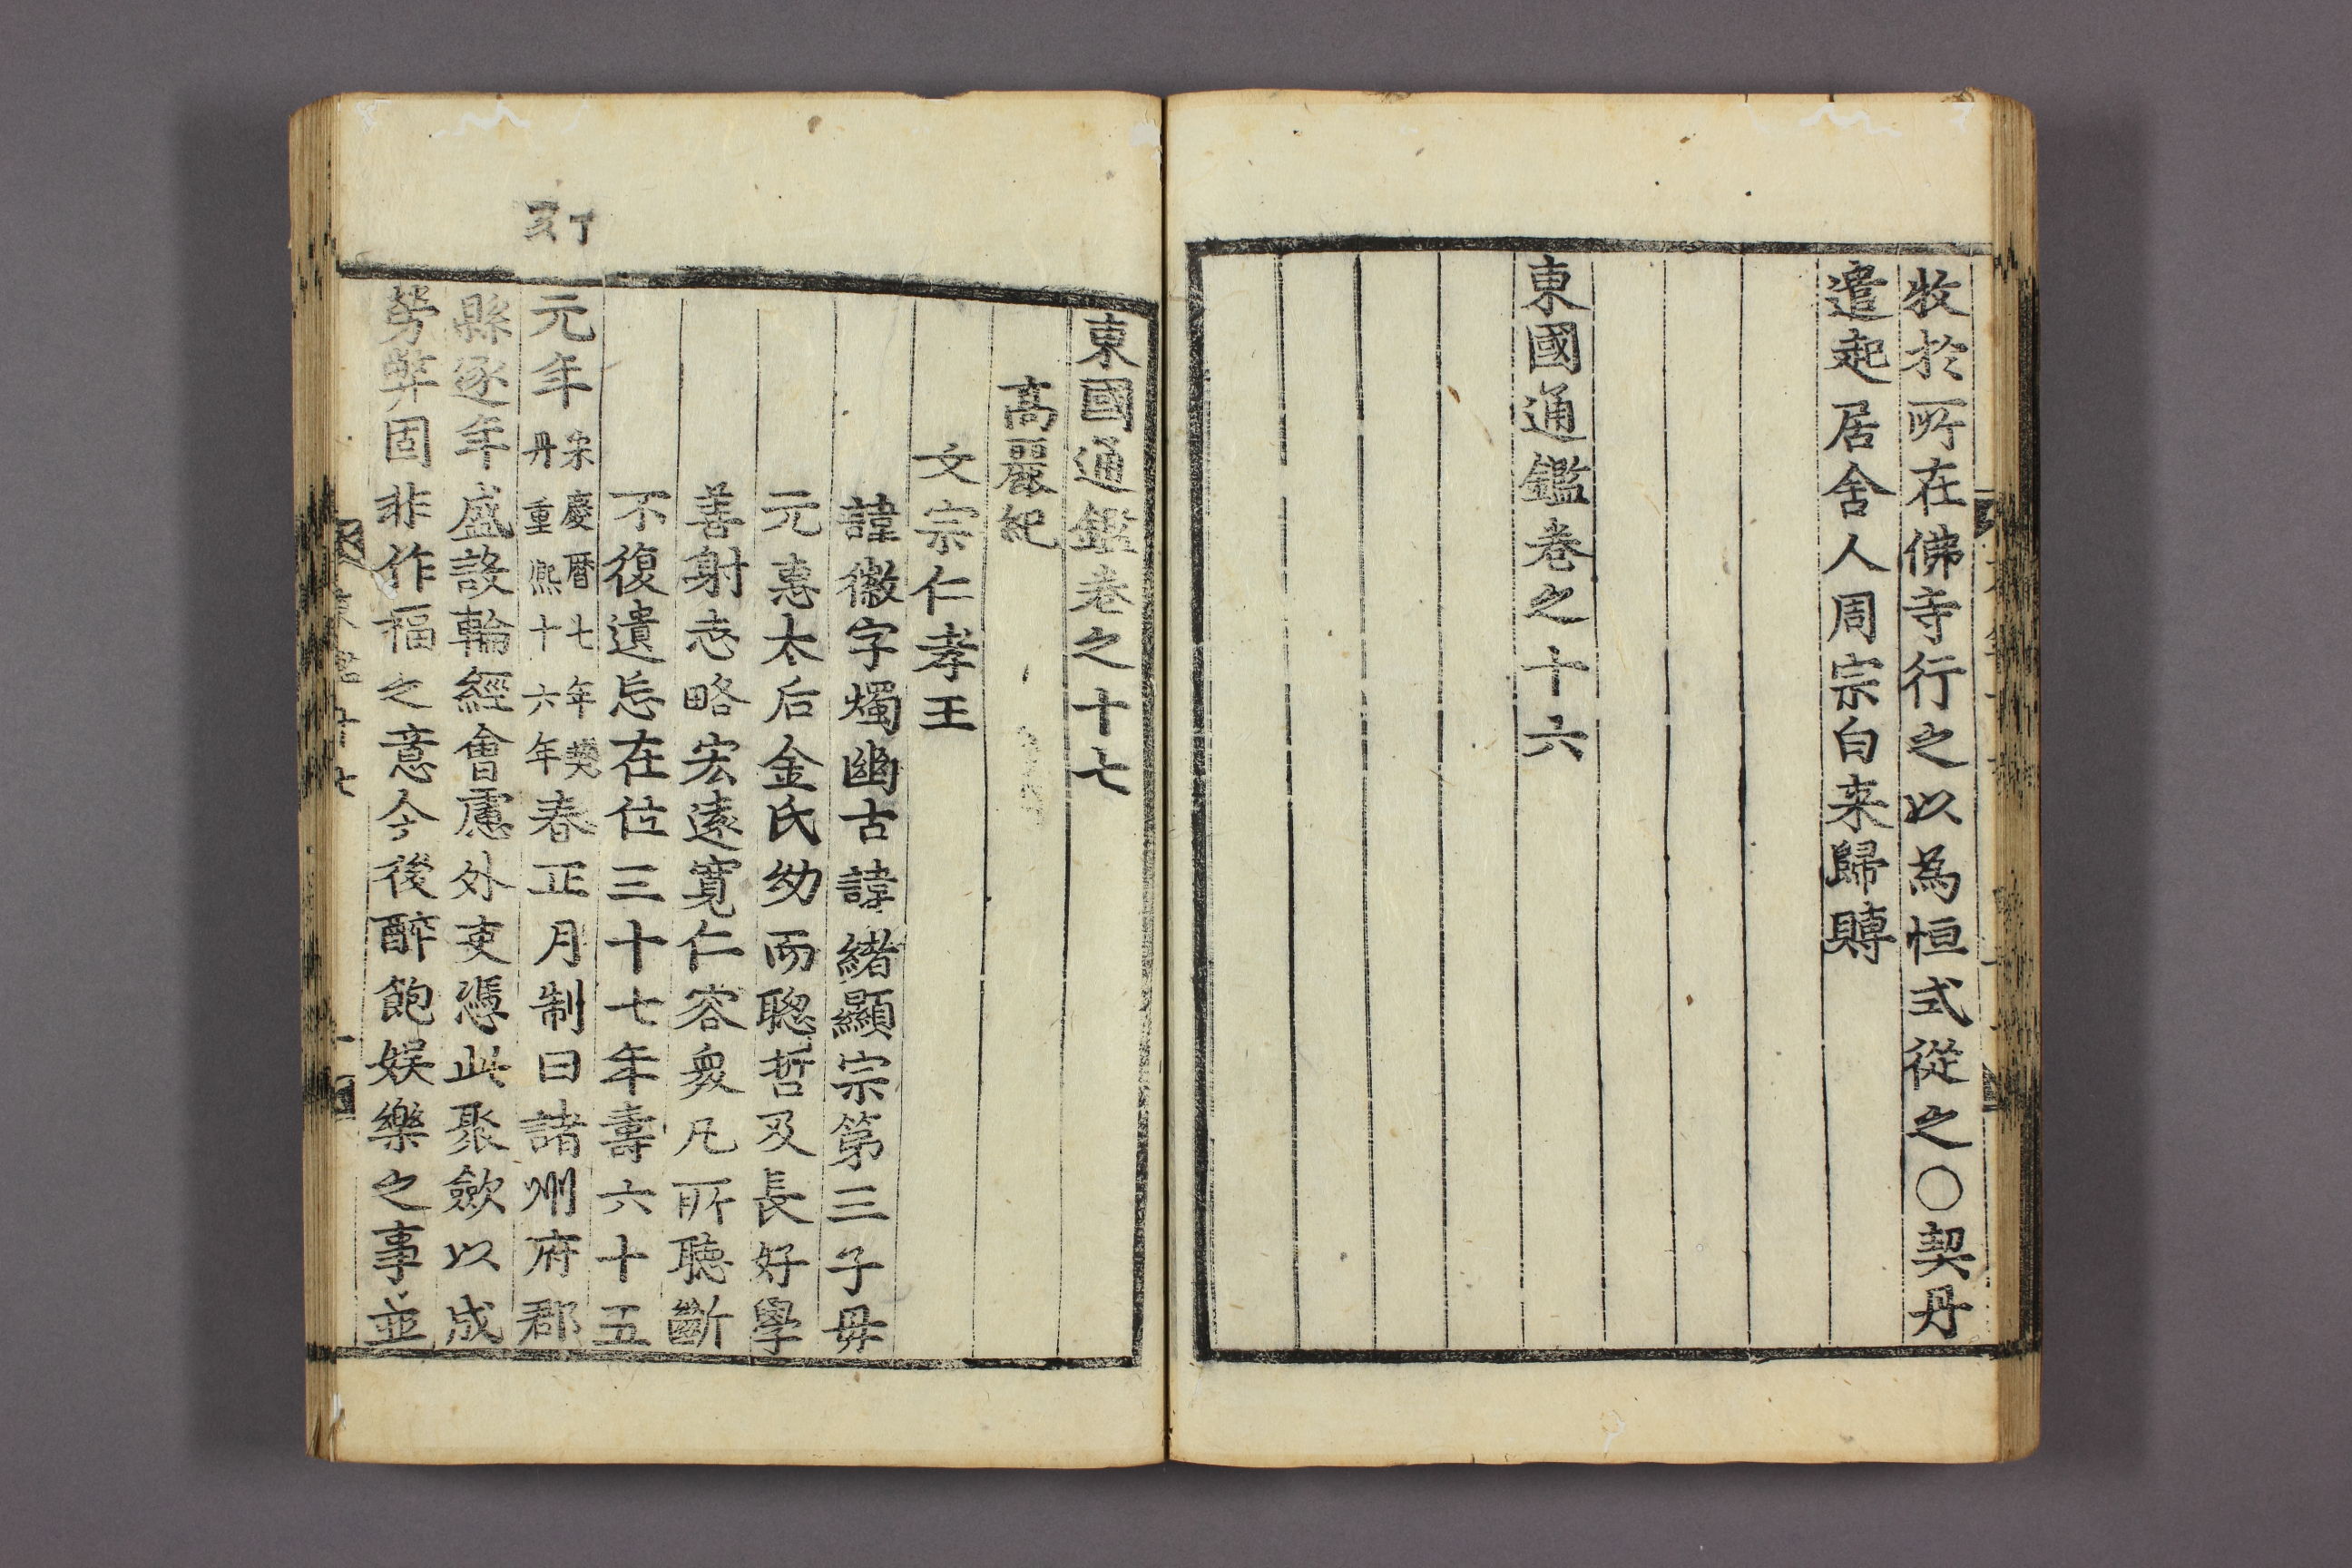 牧於所在佛寺行之以為恒式從之○契丹
遣起居舍人周宗白来歸賻
東國通鑑卷之十六
東國通鑑卷之十七
高麗紀
文宗仁孝王
諱徽字燭幽古諱緖顯宗第三子毋
元惠太后金氏㓜而聦哲及長好學
善射志略宏遠寬仁容衆凡所聽斷
不復遺忘在位三十七年壽六十五
丁亥
元年宋慶曆七年契丹重熙十六年春正月制曰諸州府郡
縣逐年盛設輪經會慮外吏憑此聚歛以成
勞弊固非作福之意今後醉飽娛樂之事並